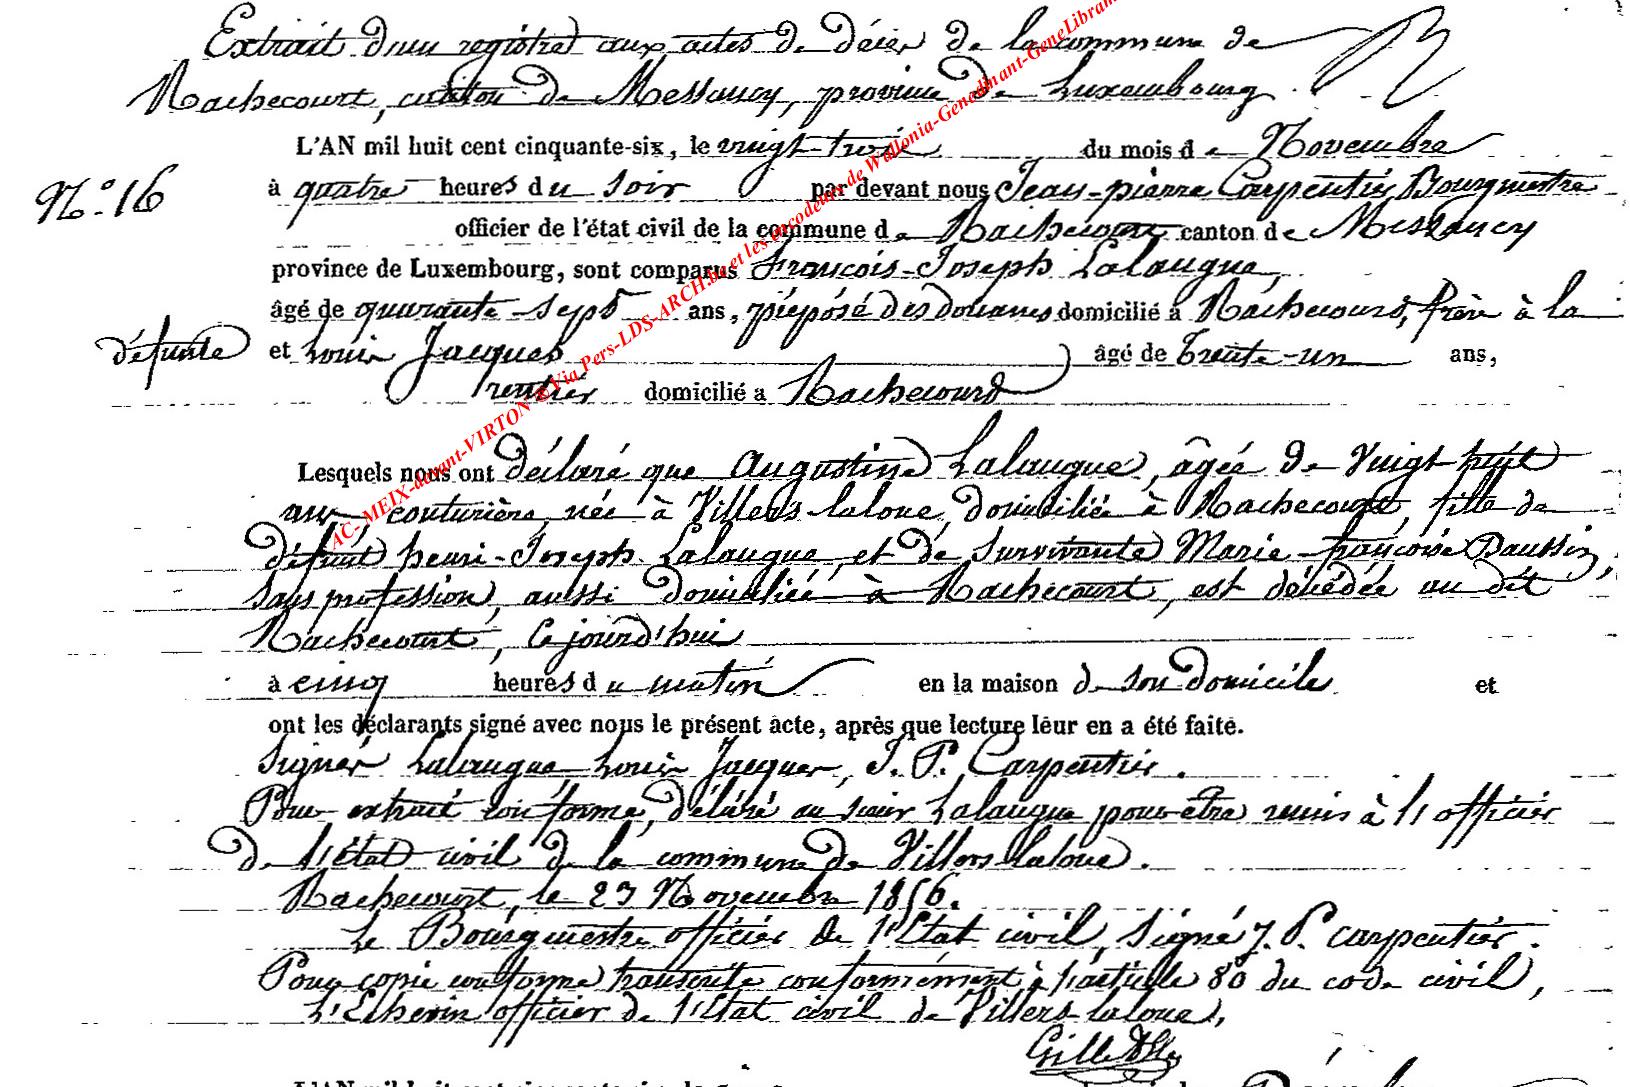 Extrait d'un registre aux actes de décès de la commune de
Rachecourt, canton de Messancy, province de Luxembourg.
L'AN mil huit cent cinquante-six, le vingt-trois du mois de Novembre
N.° 16
à quatre heures du soir par devant nous Jean-pierre Carpentier Bourgmestre
officier de l'état civil de la commune de Rachecourt canton de Messancy
province de Luxembourg, sont comparus françois-Joseph Lalangue,
âgé de quarante-sept ans, préposé des douanes domicilié à Rachecourt, frère à la
défunte et Louis Jacques âgé de trente-un ans,
rentier domicilié a Rachecourt
Lesquels nous ont déclaré que Augustine Lalangue, âgée de vingt huit
ans, couturière, née à Villers-laloue, domiciliée à Rachecourt, fille de
défunt henri-Joseph Lalangue et de survivante Marie-françoise,
sans profession, aussi domiciliée à Rachecourt, est décédée au dit
Rachecourt, ce jourd'hui
à cinq heures du matin en la maison de son domicile et
ont les déclarants signé avec nous le présent acte, après que lecture leur en a été faite.
Signés Lalangue Louis Jacques, J. P. Carpentier.
Pour extrait conforme, délivré au sieur Lalangue pour être remis à l'officier
de l'état civil de la commune de Villers-laloue.
Rachecourt, le 23 Novembre 1856.
Le Bourgmestre officier de l'Etat civil, signé J. P. Carpentier.
Pour copie conforme transcrite conformément à l'article 80 du code civil,
L'Echevin officier de l'Etat civil de Villers-laloue,
AC- MEIX-devant-VIRTON @ Via Pers-LDS-ARCH.be et les encodeurs de Wallonia-Genedinant-GeneLibram